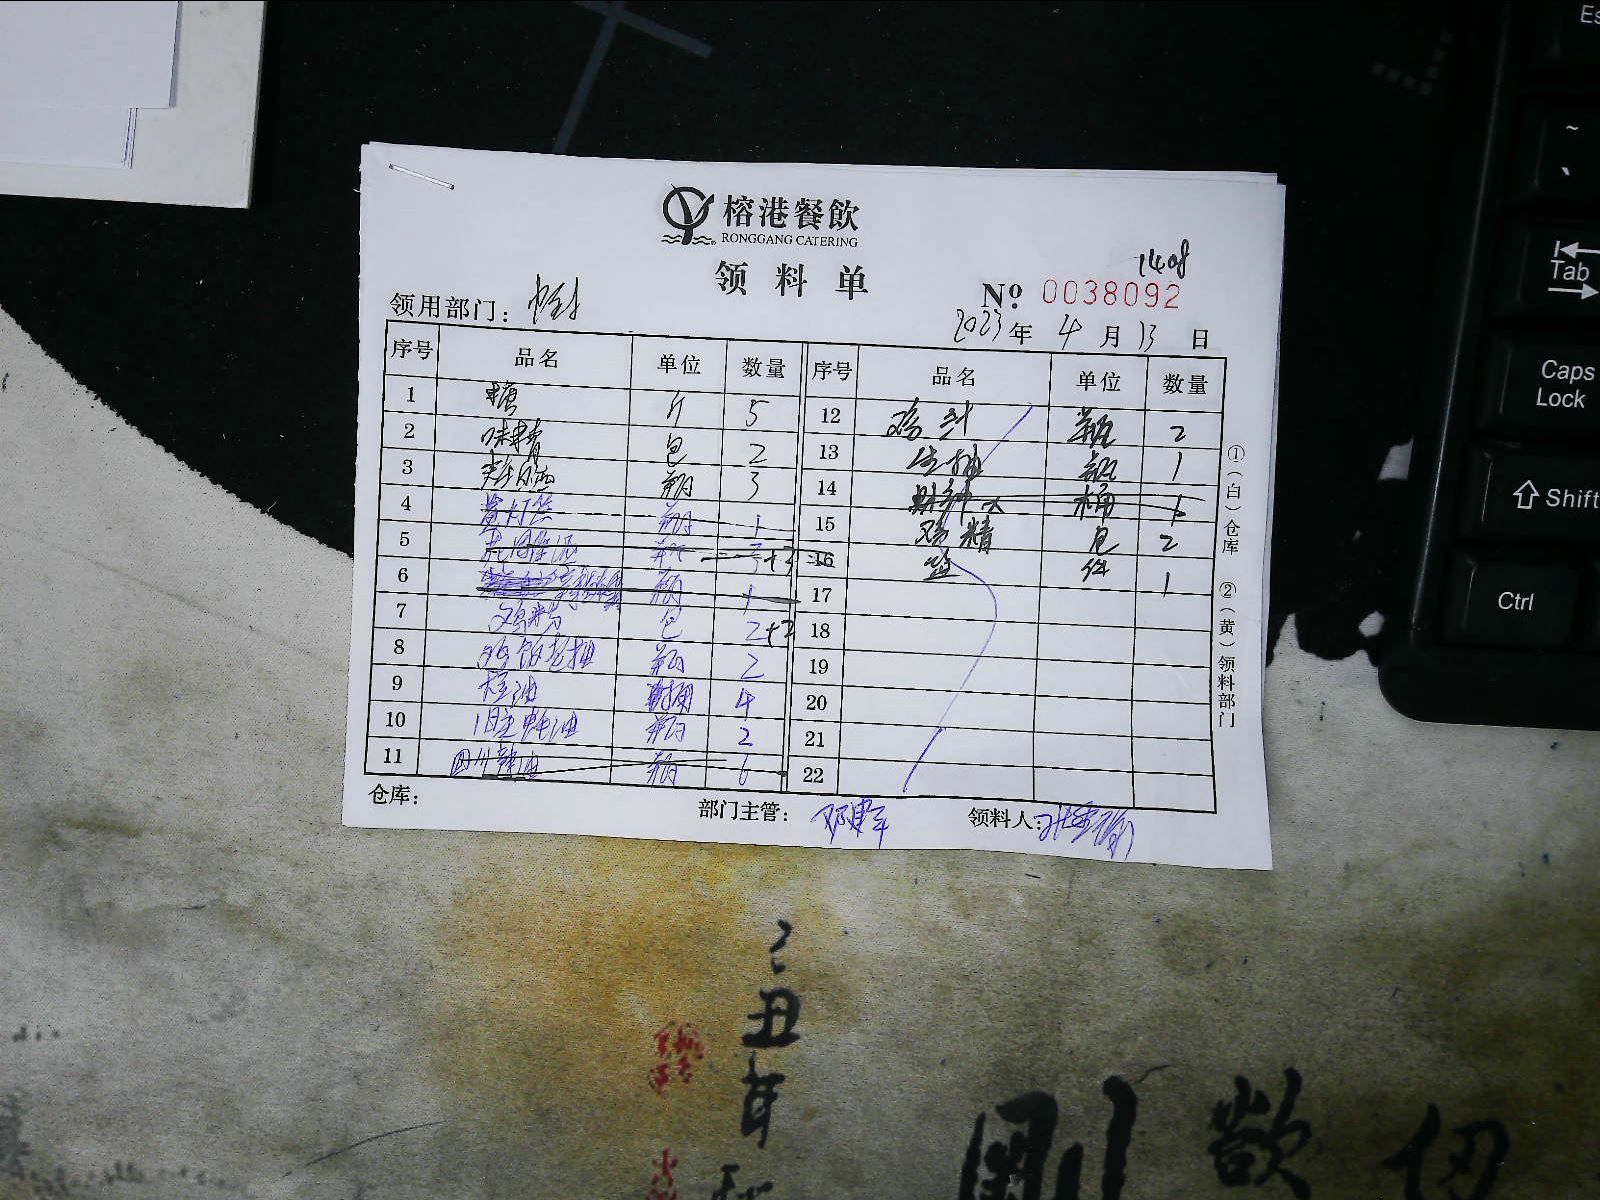 榕港餐飲
RONGGANG CATERING
领料单
1408
№ 0038092
领用部门：
2023年 4月 13日
序号 品名 单位 数量 序号 品名 单位 数量
1 糖 斤 5 12 鸡汁 瓶 2
2 味精 包 2 13 生抽 瓶 1
3 瓶 3 14 桶 1
4 黄灯笼 瓶 1 15 鸡精 包 2
5 瓶 3+3 16 盐 件 1
6 瓶 1 17
7 鸡粉 包 2+2 18
8 鸡饭老抽 瓶 2 19
9 油 瓶 4 20
10 旧庄蚝油 瓶 2 21
11 四川辣油 瓶 6 22
①（白）仓库 ②（黄）领料部门
仓库： 部门主管：邓建军 领料人：
Es
~
、
Tab
Caps Lock
Shift
Ctrl
己丑年
剛
欲
切